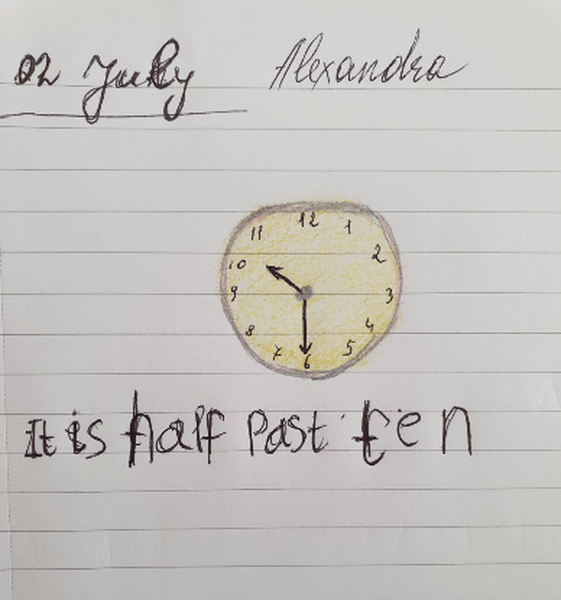 02 July Alexandra
12
11 1
10 2
9 3
8 4
7 5
6
It is half past ten